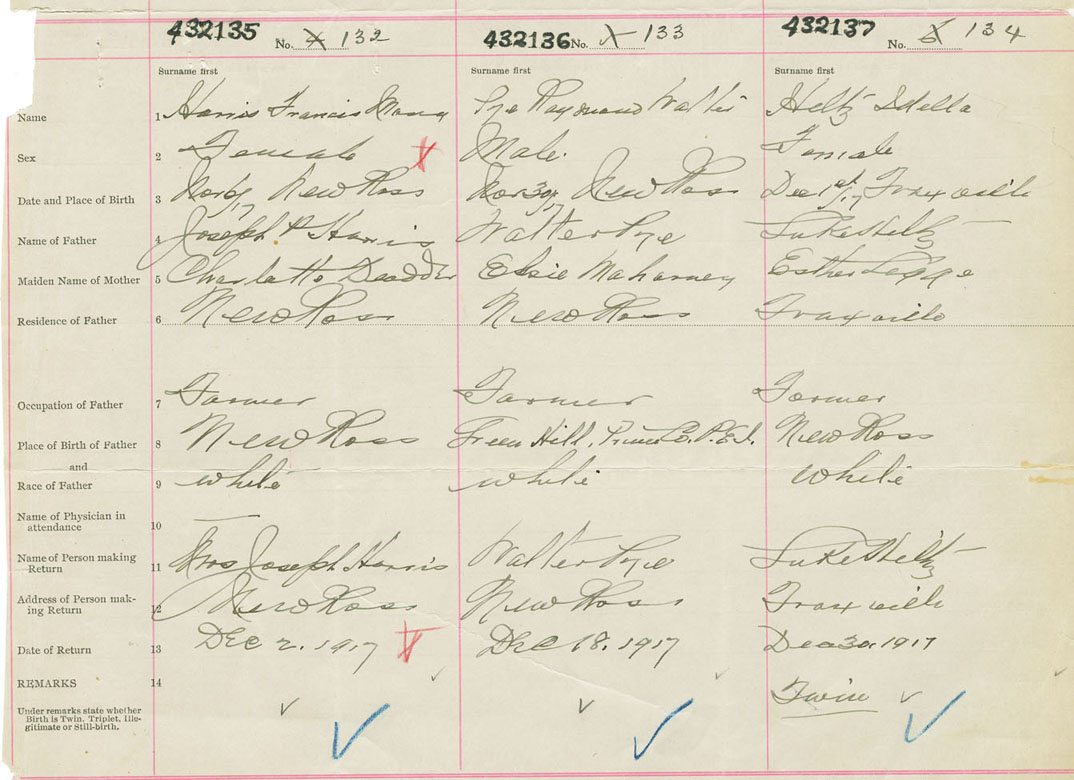 432135 No. 132
432136 No. 133
432137 No. 134
Surname first Surname first Surname first
Name 1 Harris Francis Pye Raymond Walter Hiltz Idella
Sex 2 Female Male. Female
Date and Place of Birth 3 Nov 6/17 New Ross Nov 30/17 New Ross Dec 1st/17
Name of Father 4 Joseph P Harris Walter Pye Luke Hiltz
Maiden Name of Mother 5 Charlotte Elsie Esther
Residence of Father 6 New Ross New Ross
Occupation of Father 7 Farmer Farmer Farmer
Place of Birth of Father 8 New Ross Hill, Co. P.E.I. New Ross
and
Race of Father 9 white white white
Name of Physician in
attendance 10 —
Name of Person making
Return 11 Mrs Joseph Harris Walter Pye Luke Hiltz
Address of Person mak-
ing Return 12 New Ross New Ross
Date of Return 13 Dec 2. 1917 Dec 18. 1917 Dec 30. 1917
REMARKS 14 Twin
Under remarks state whether
Birth is Twin. Triplet, Ille-
gitimate or Still-birth.